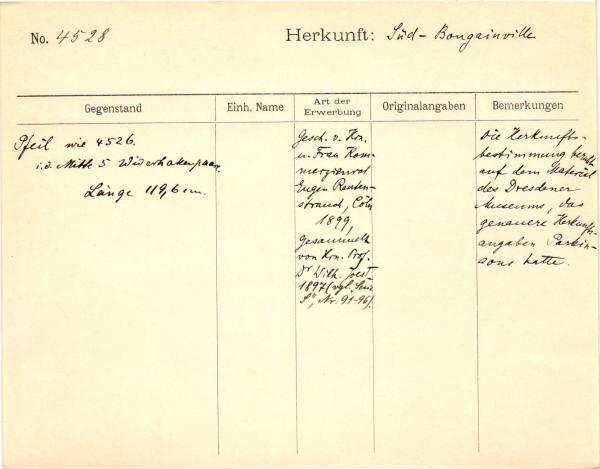 No. 4528 Herkunft: Süd-Bougainville
Gegenstand Einh. Name Art der Erwerbung Originalangaben Bemerkungen
Pfeil wie 4526.
i. d. Mitte 5 Widerhakenpaare.
Länge 119,6 cm.
Gesch. v. Hrn.
u. Frau Kom-
merzienrat
Eugen Rauten-
strauch, Cöln
1899,
gesammelt
von Hrn. Prof.
Dr Wilh. Joest
1897 (vgl.
Nr. 91-96).
Die Herkunfts-
bestimmung beruht
auf dem Material
des Dresdener
Museums, das
genauere Herkunfts-
angaben Parkin-
sons hatte.